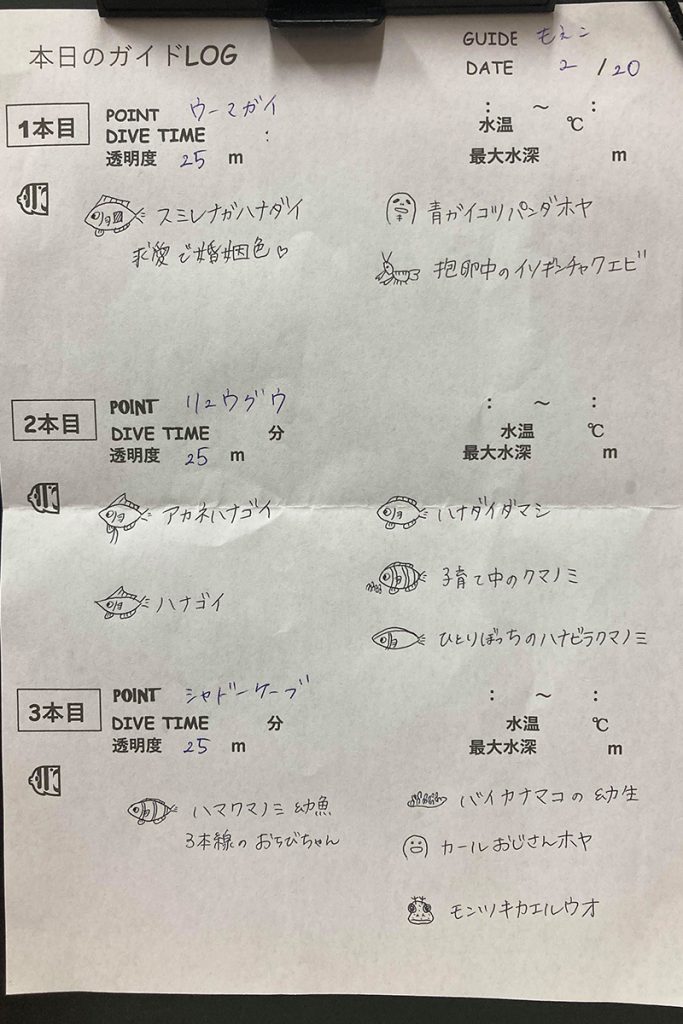 本日のガイドLOG
GUIDE もえこ
DATE 2 / 20
1本目
POINT ウーマガイ
DIVE TIME :
透明度 25 m
: ～ :
水温 ℃
最大水深 m
スミレナガハナダイ
求愛で婚姻色♡
青ガイコツパンダホヤ
抱卵中のイソギンチャクエビ
2本目
POINT リュウグウ
DIVE TIME 分
透明度 25 m
: ～ :
水温 ℃
最大水深 m
アカネハナゴイ
ハナゴイ
ハナダイダマシ
子育て中のクマノミ
ひとりぼっちのハナビラクマノミ
3本目
POINT シャドーケーブ
DIVE TIME 分
透明度 25 m
: ～ :
水温 ℃
最大水深 m
ハマクマノミ 幼魚
3本線の おちびちゃん
バイカナマコの 幼生
カールおじさんホヤ
モンツキカエルウオ